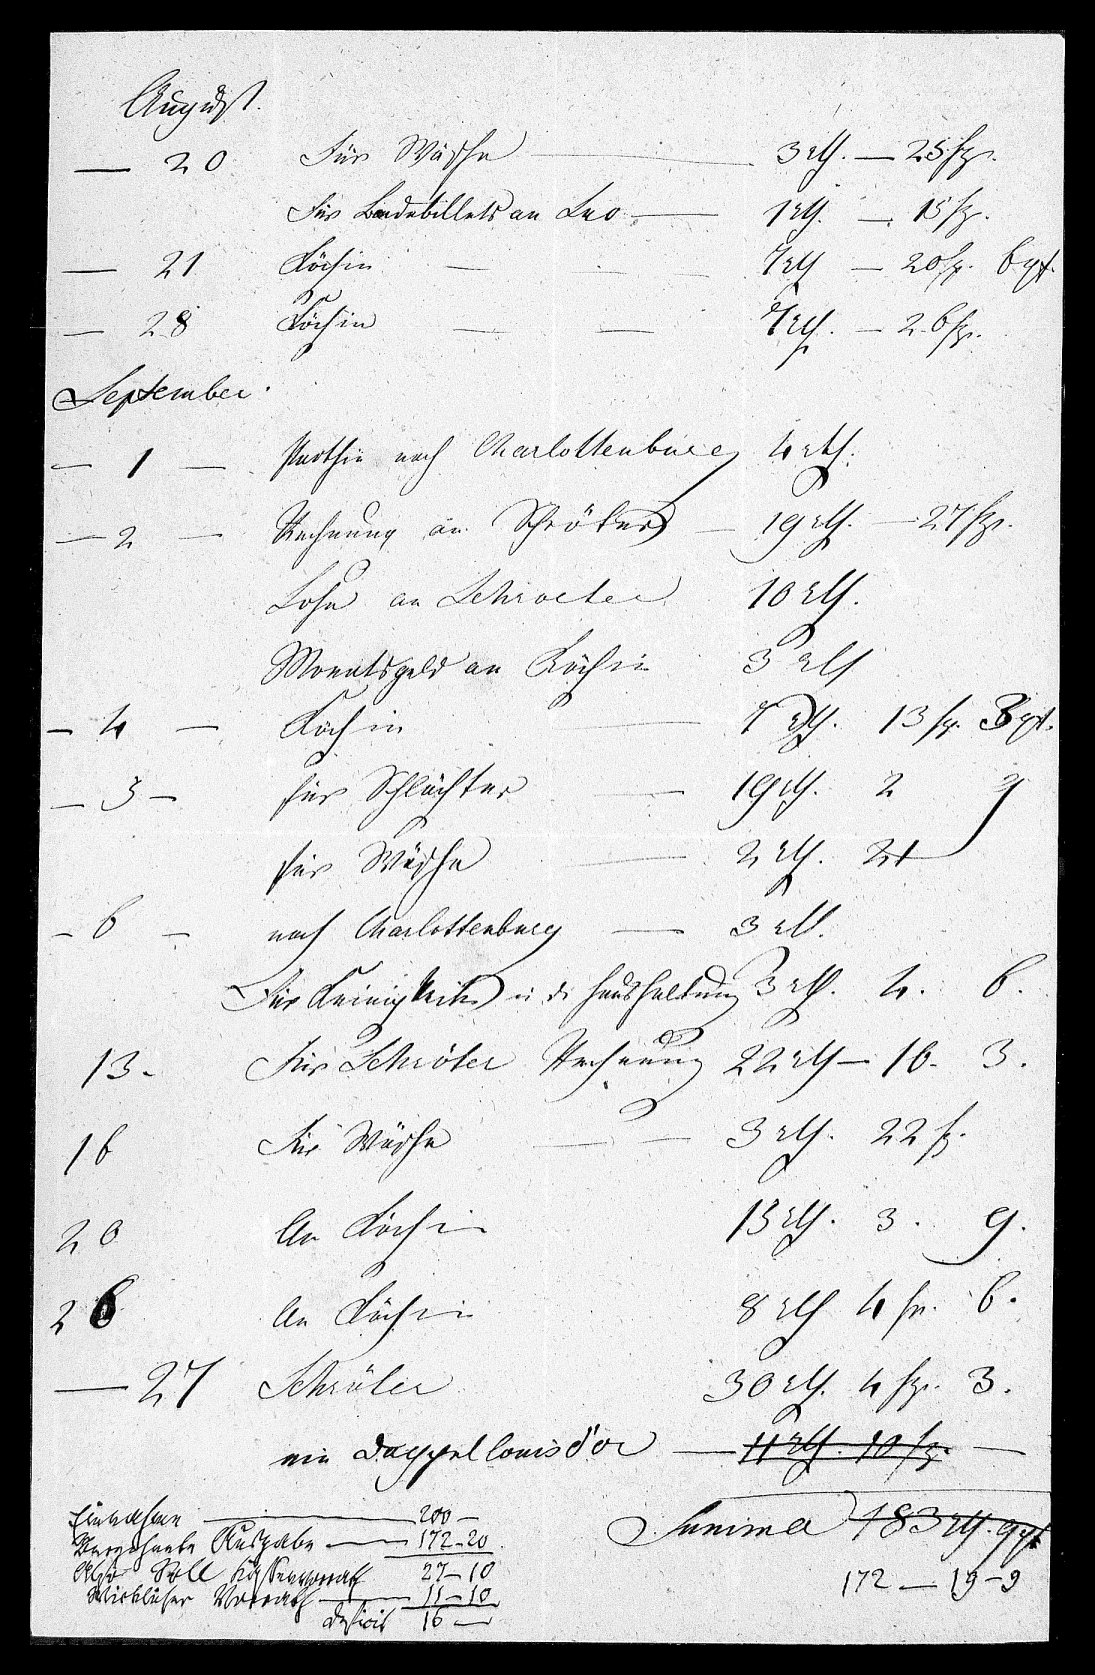 August.
— 20 Für Wäsche — 3 rth. — 25 sgr.
Für Badebillets an Leo — 1 rth. — 15 sgr.
— 21 Köchin — — 7 rth — 20 sgr. 6 gf.
— 28 Köchin — — 7 rth. — 26 sgr.
September.
— 1 — Parthie nach Charlottenburg 4 rth.
— 2 — Rechnung an Schröter — 19 rth. — 27 sgr.
Lohn an Schroeter 10 rth.
Monatsgeld an Köchin 3 rth
— 4 — Köchin — 7 rth. 13 sgr. 3 gf.
— 3 — für Schlächter — 19 rth. 2 9
für Wäsche — 2 rth. 21
— 6 — nach Charlottenburg — 3 rth.
Für Kleinigkeiten in d. Haushaltung 3 rth. 4. 6.
13. Für Schröter Rechnung 22 rth — 16. 3.
16 Für Wäsche — — 3 rth. 22 sgr.
20 An Köchin 13 rth. 3. 9.
26 An Köchin 8 rth 4 sgr. 6.
— 27 Schröter 30 rth. 4 sgr. 3.
ein Doppellouisd'or — 11 rth. 10 sgr. —
Summa 183 rth. 9 gf
172 — 19 - 9
Einnahme — 200 —
Berechnete Ausgabe — 172 - 20
Also Soll Kassenvorrath 27 - 10
Wirklicher Vorrath — 11 - 10
Deficit 16 —